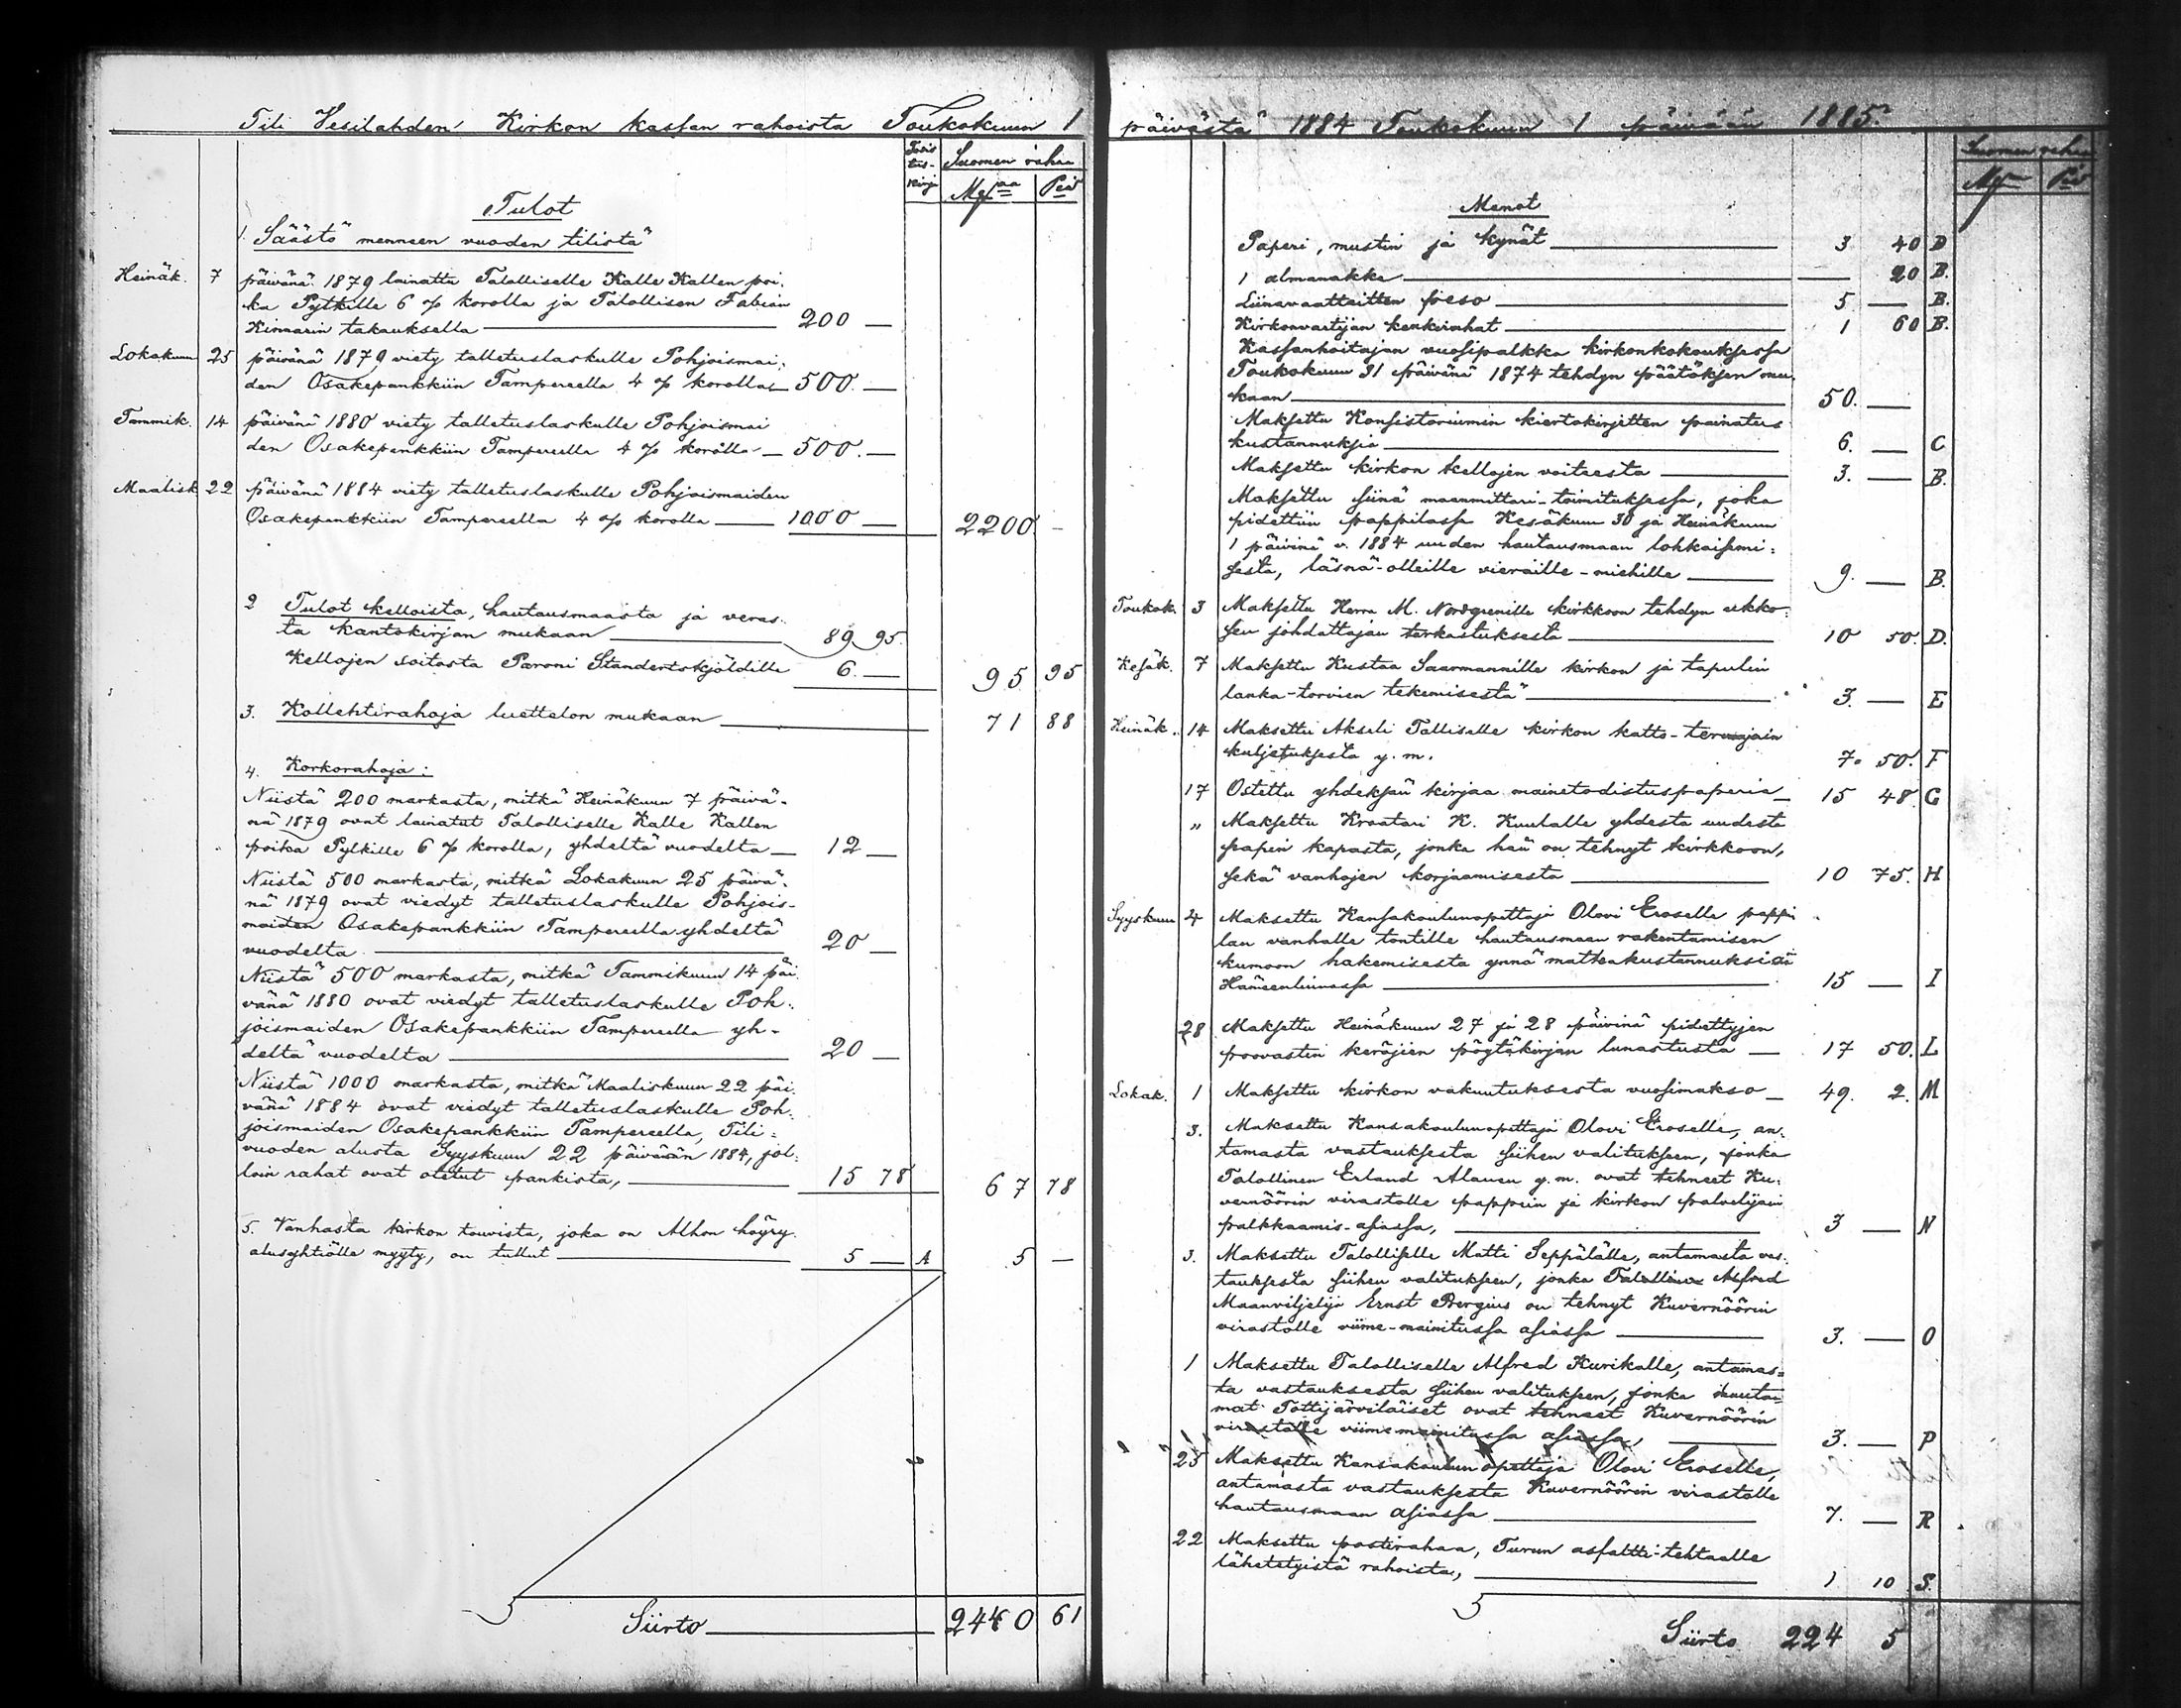 Tili Vesilahden Kirkon kassan rahoista Toukokuun 1
Todis
tus-
kirja
Suomen rahaa
Mf aa
Piä
Tulot
1. Säästö menneen vuoden tilistä
Heinäk. 7 päivänä 1879 lainattu Talolliselle Kalle Kallen poi-
ka Pylkille 6 % korolla ja Talollisen Fabian
takauksella — 200 —
Lokakuun 25 päivänä 1879 viety talletuslaskulle Pohjoismai-
den Osakepankkiin Tampereella 4 % korolla — 500. —
Tammik. 14 päivänä 1880 viety talletuslaskulle Pohjoismai
den Osakepankkiin Tampereella 4 % korolla — 500. —
Maalisk. 22 päivänä 1884 viety talletuslaskulle Pohjoismaiden
Osakepankkiin Tampereella 4 % korolla — 1000 — 2200 -
2 Tulot kelloista, hautausmaasta ja veras-
ta kantokirjan mukaan — 89 95.
Kellojen soitosta Paroni Standertskjöldille 6. — 95 95
3. Kollehtirahoja luettelon mukaan — 71 88
4. Korkorahoja:
Niistä 200 markasta, mitkä Heinäkuun 7 päivä-
nä 1879 ovat lainatut Talolliselle Kalle Kallen
poika Pylkille 6 % korolla, yhdeltä vuodelta — 12 —
Niistä 500 markasta, mitkä Lokakuun 25 päivä-
nä 1879 ovat viedyt talletuslaskulle Pohjois-
maiden Osakepankkiin Tampereella yhdeltä
vuodelta — 20 —
Niistä 500 markasta, mitkä Tammikuun 14 päi-
vänä 1880 ovat viedyt talletuslaskulle Poh-
joismaiden Osakepankkiin Tampereella yh-
deltä vuodelta — 20 —
Niistä 1000 markasta, mitkä Maaliskuun 22 päi-
vänä 1884 ovat viedyt talletuslaskulle Poh-
joismaiden Osakepankkiin Tampereella, Tili-
vuoden alusta Syyskuun 22 päivään 1884, jol-
loin rahat ovat otetut pankista, — 15 78 67 78
5. Vanhasta kirkon touvista, joka on Alhon höyry-
alusyhtiölle myyty, on tullut — 5 — A 5 —
Siirto — 2440 61
päivästä 1884 Toukokuun 1 päivään 1885.
Suomen rahaa
Mf
Piä
Menot
Paperi, mustin ja kynät — 3 40 B
1 almanakka — 20 B.
Liinavaatteitten peso — 5 — B.
Kirkonvartijan kenkirahat — 1 60 B.
Kassanhoitajan vuosipalkka kirkonkokouksessa
Toukokuun 31 päivänä 1874 tehdyn päätöksen mu-
kaan — 50. —
Maksettu Konsistoriumin kiertokirjetten painatus
kustannuksia — 6. — C
Maksettu kirkon kellojen voiteesta — 3. — B.
Maksettu siinä maanmittari-toimituksessa, joka
pidettiin pappilassa Kesäkuun 30 ja Heinäkuun
1 päivinä v. 1884 uuden hautausmaan lohkaisemi-
sesta, läsnä-olleille vieraille-miehille — 9. — B.
Toukok. 3 Maksettu Herra M. Nordgrenille kirkkoon tehdyn ukko-
sen johdattajan tarkastuksesta — 10 50. D.
Kesäk. 7 Maksettu Kustaa Saarmannille kirkon ja tapulin
lanka-torvien tekemisestä — 3. — E
Heinäk. 14 Maksettu Akseli Talliselle kirkon katto-tervaajain
kuljetuksesta y. m. 7. 50. F
17 Ostettu yhdeksän kirjaa mainetodistuspaperia — 15 48. G
" Maksettu Kraatari K. Kuuhalle yhdestä uudesta
papin kapasta, jonka hän on tehnyt kirkkoon,
sekä vanhojen korjaamisesta — 10 75. H
Syyskuun 4 Maksettu Kansakoulunopettaja Olovi Eroselle pappi
lan vanhalle tontille hautausmaan rakentamisen
kumoon hakemisesta ynnä matkakustannuksia
Hämeenlinnassa — 15 — I
28 Maksettu Heinäkuun 27 ja 28 päivinä pidettyjen
provastin keräjien pöytäkirjan lunastusta — 17 50. L
Lokak. 1 Maksettu kirkon vakuutuksesta vuosimakso — 49. 2. M
3. Maksettu Kansakoulunopettaja Olovi Eroselle, an-
tamasta vastauksesta siihen valitukseen, jonka
Talollinen Erland Alanen y. m. ovat tehneet Ku-
vernöörin virastolle pappein ja kirkon palvelijain
palkkaamis-asiassa, — 3 — N
3. Maksettu Talolliselle Matti Seppälälle, antamasta vas-
tauksesta siihen valitukseen, jonka Talollinen Alfred
Maanviljelijä Ernst Bergius on tehnyt Kuvernöörin
virastolle viime-mainitussa asiassa — 3. — O
1 Maksettu Talolliselle Alfred Kurikalle, antamas-
ta vastauksesta siihen valitukseen, jonka muuta-
mat Tottijärviläiset ovat tehneet Kuvernöörin
virastolle viimemainitussa asiassa, — 3. — P
25 Maksettu Kansakoulun opettaja Olovi Eroselle,
antamasta vastauksesta Kuvernöörin virastolle
hautausmaan asiassa — 7. — R
22 Maksettu postirahaa, Turun asfaltti-tehtaalle
lähetetyistä rahoista, — 1 10 S.
Siirto 224 5